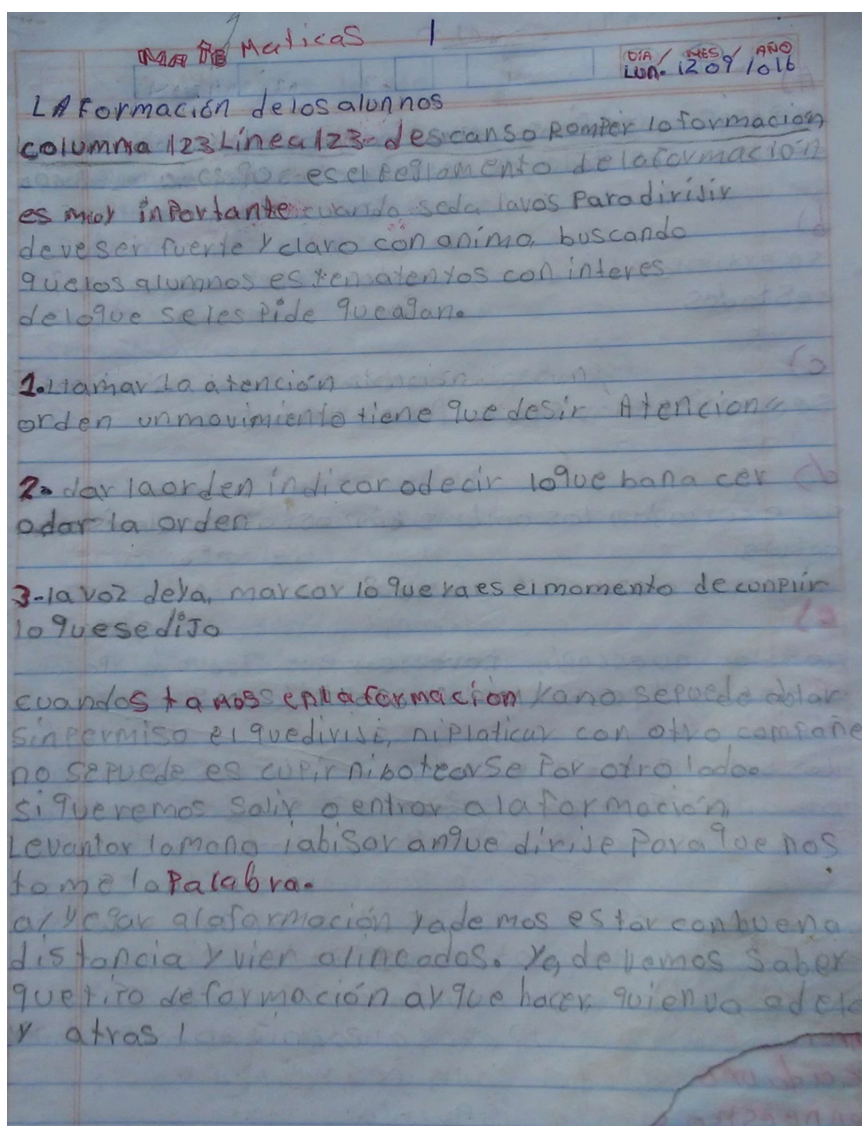 Maticas 1
DIA / MES / AÑO
LUN. 12 09 1016
LA Formación delos alonnos
columna 123 Línea 123- descanso romper la formacion
es el reglamento de la formación
es muy inportante cuando seda lavos para dirijir
deve ser fuerte y claro con animo, buscando
que los alumnos esten atentos con interes
delo que seles pide que agan.
1. Llamar la atención
orden un movimiento tiene que desir Atencion
2. dar la orden indicar o decir loque bana cer
o dar la orden
3- la voz deya, marcar lo que ya es el momento de conplir
lo que se dijo
cuando stamos en la formacion ya no sepuede ablar
sin permiso el que divisi, ni platicar con otro compañe
no se puede es cupir ni botearse por otro lado.
si queremos salir o entrar a la formación
Levantar la mano i abisar an que dirije para que nos
tome la Palabra.
al yegar ala formación yade mos estar con buena
distancia y vien alineados. ya devemos saber
que tipo de formación ay que hacer. quien va adela
y atras